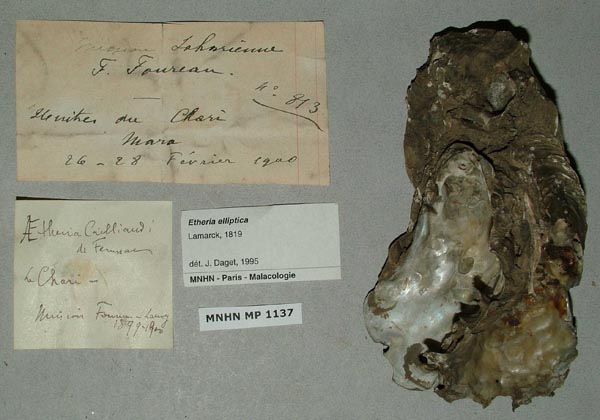 Mission Saharienne
F. Foureau.
No. 813
du Chari
Mara
26 - 28 Février 1900
Ætheria Cailliaudi
de Ferussac
Le Chari -
Mission Foureau - Lamy
1899-1900
Etheria elliptica
Lamarck, 1819
dét. J. Daget, 1995
MNHN - Paris - Malacologie
MNHN MP 1137